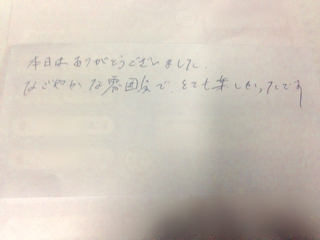 本日はありがとうございました。
なごやかな雰囲気で、とても楽しかったです